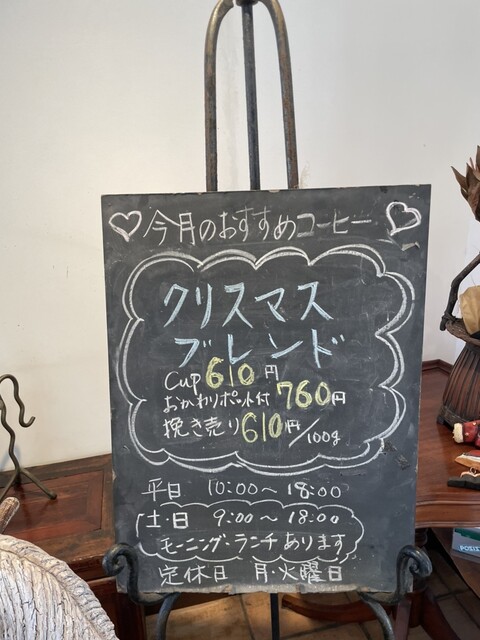 ♡今月のおすすめコーヒー♡
クリスマス
ブレンド
Cup 610円
おかわりポット付 760円
挽き売り 610円/100g
平日 10:00～18:00
土・日 9:00～18:00
モーニング・ランチあります
定休日 月・火曜日